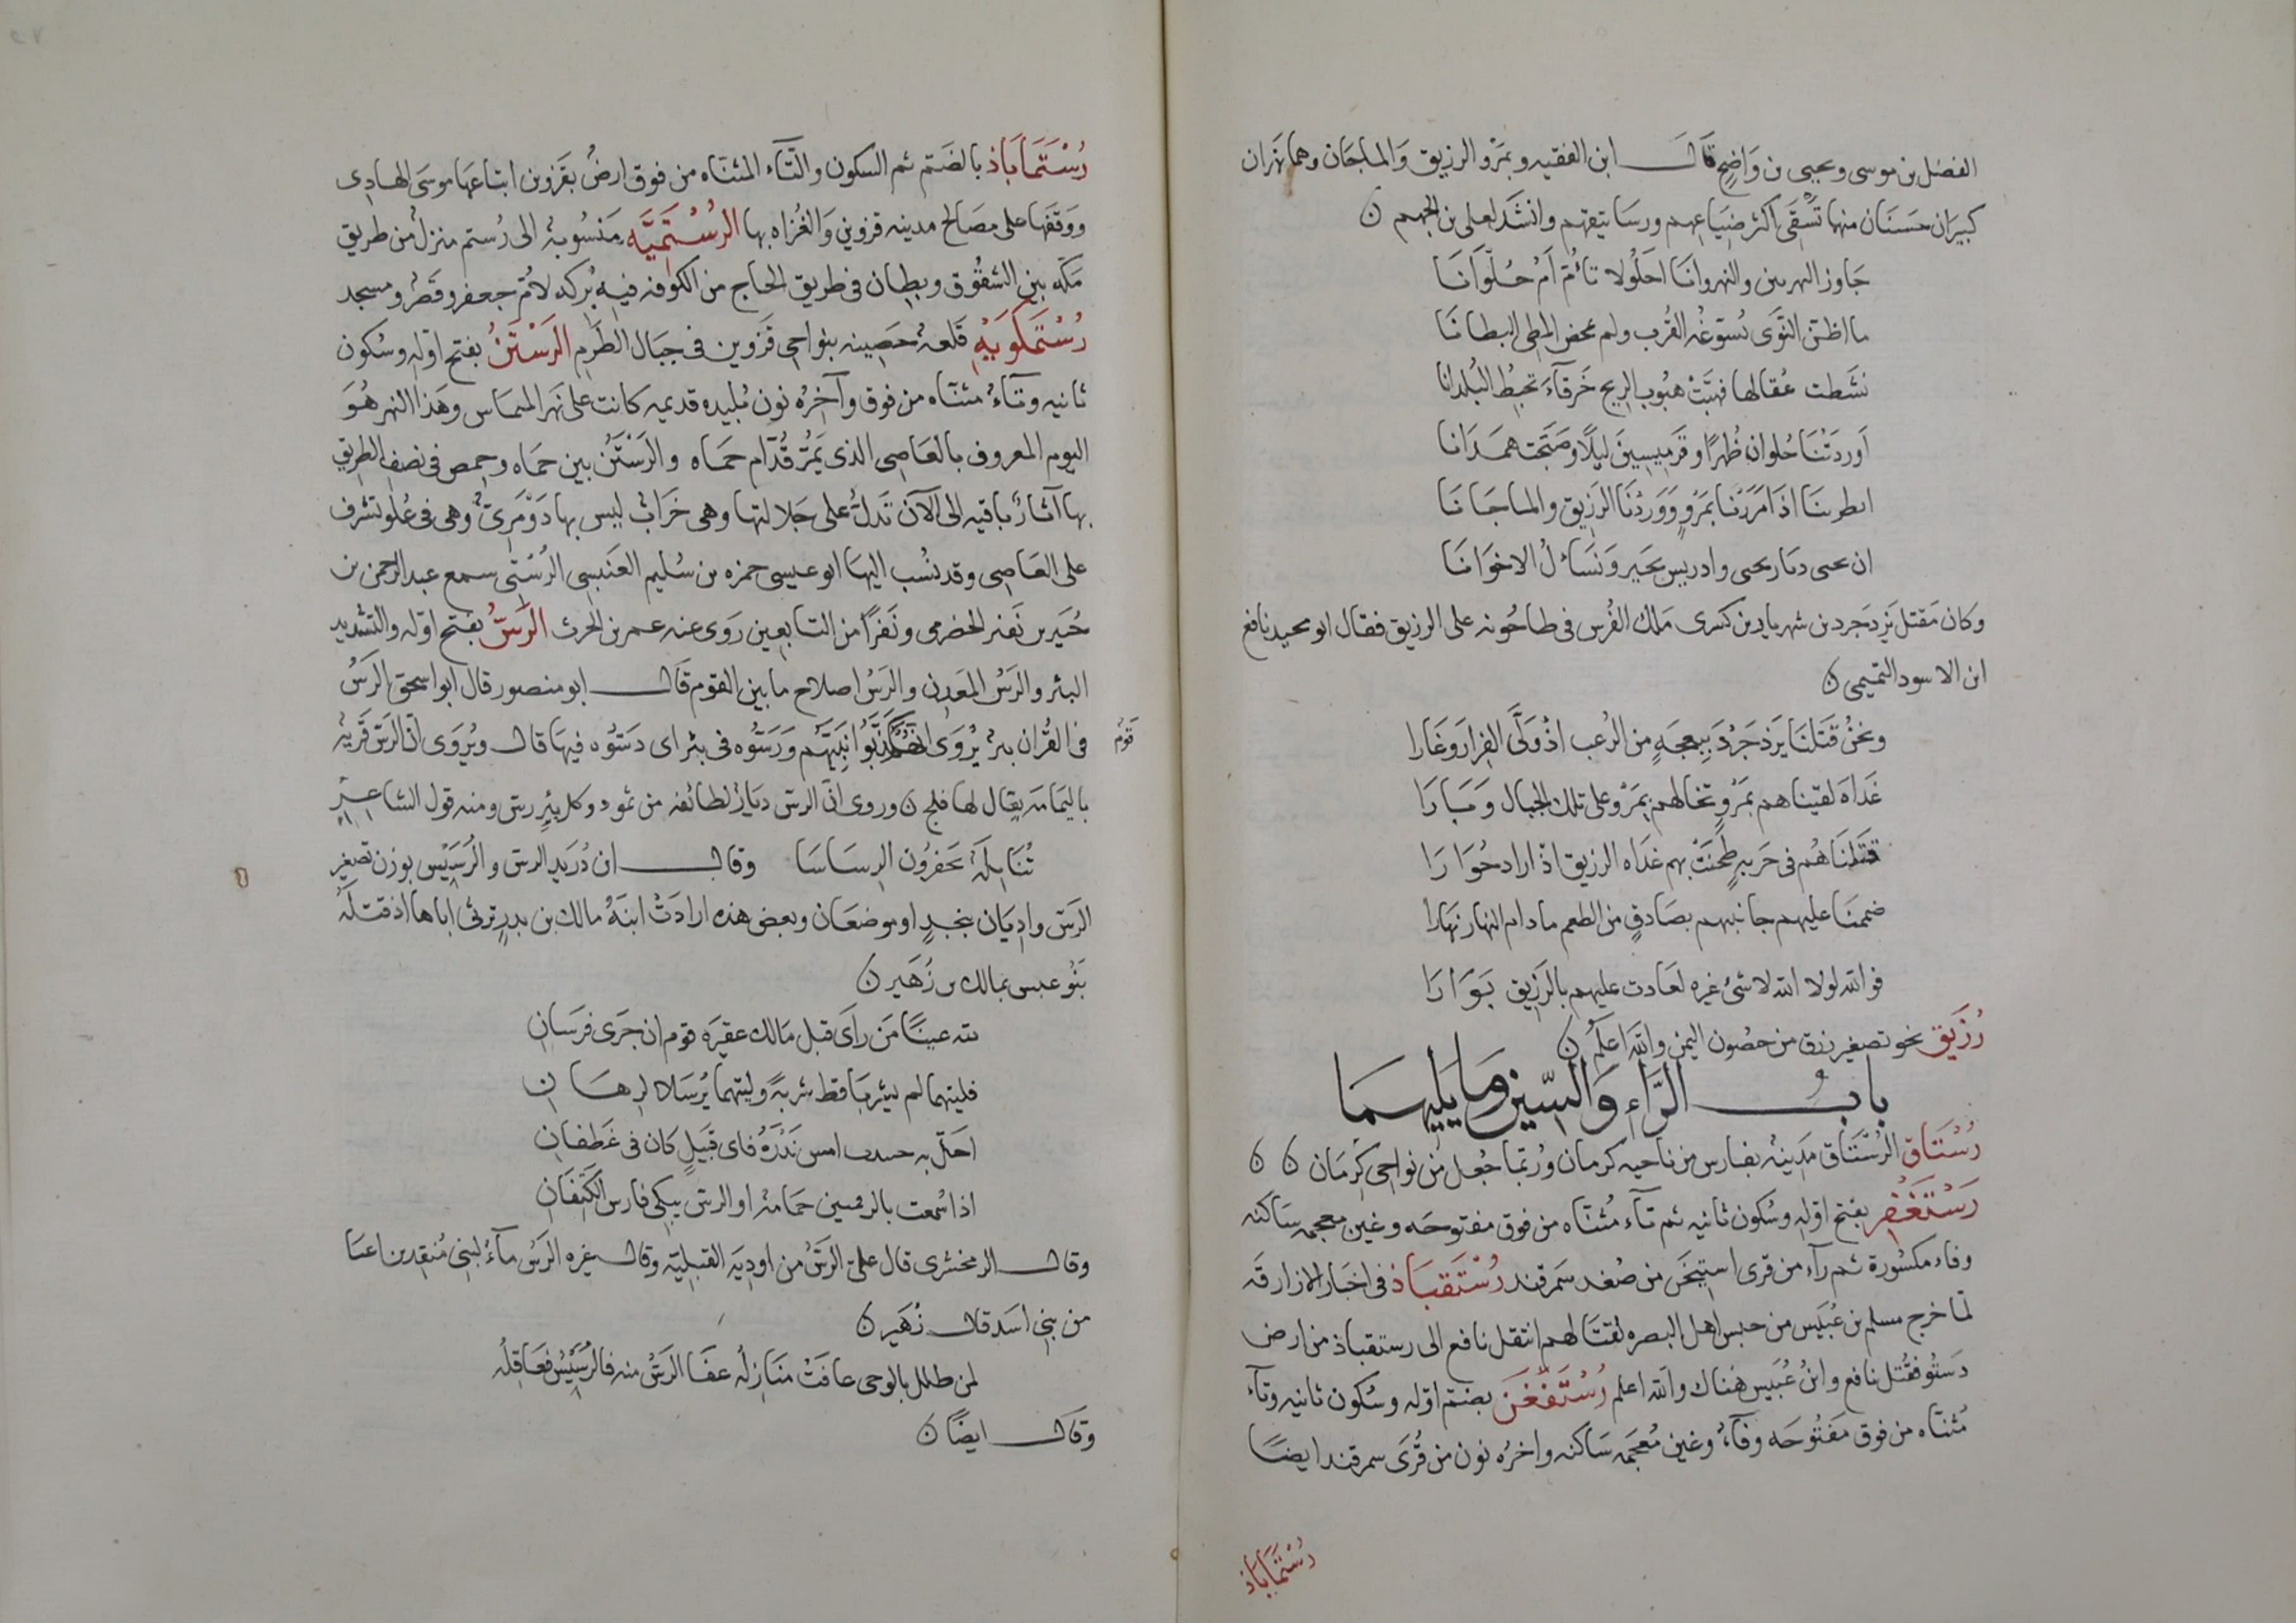 الفضل بن موسى ويحيى بن وَاضِح قَالَ ابن الفقيه وبمَرْو الرزيق وَالماجَان وهما نهَران
كبيرَان حسَنَان منهما تُسْقَى اكثر ضيَاعهم ورسَاتيقهم وانشَدَ لعلى بن الجهم ن
جَاوز النهرين والنهروانَا احَلُولا تائمّ اَمْ حُلوَانَا
ما اظن النَّوَى تُسَوّغه القُرب ولم تمخض المطى البطانَا
نَشَطت عُقالها فهبّتْ هبُوب الريح خَرقآءَ تخبطُ البُلدانا
اَوردَتْنَا حُلوان ظُهرًا وقَرميسينَ ليلًا وصَبّحَت همَدَانا
انظرينَا اذَا مَرَرْنَا بمَرْوٍ وَوَرَدْنَا الرَزيق والماجَانَا
ان نحيى ديار يحيى وادريس بخَير ونَسَائل الاخوَانَا
وكان مَقتل يَزدَجرد بن شهريار بن كسرى مَلك الفُرس فى طاحُونه على الرزيق فقال ابو محيد نافع
ابن الاسود التميمى ن
ونحنُ قَتَلنَا يَزدَجَرْدَ ببعجَةٍ من الرُعب اذْ وَلَّى الفِرارَ وغَارا
غَدَاةَ لقيناهم بمَرْوٍ تخالهم بمَرْو على تلك الجبال وَبَارَا
قتَلنَاهُم فى حَربةٍ طحنَتْ بهم غدَاه الرزيق اذْ اراد حُوَارَا
ضممنَا عليهم جانبيهم بصَادقٍ من الطعم مادام النهار نهَارا
فوالله لولا الله لا شئ غيره لعَادت عليهم بالرَزيق بَوَارَا
رُزَيق نحو تصغير رزق من حصُون اليمن واللّه اعلم ن
باب الرَّاءِ وَالسّين وَمَا يَليهمَا
رُسْتَاق الرُسْتَاق مَدينةُ بفارس من ناحيه كرمان ورُبّما جُعل من نواحى كِرْمَان ن ن
رَسْتَغْفِر بفتح اوّله وسُكون ثانيه ثم تآء مُثنّاه من فوق مفتوحَه وغين معجمه سَاكنه
وفاء مكسُورة ثم رآء من قرى اشتيخَن من صُغد سَمرقند رُسْتَقُبَاذ فى اخبَار الازارقَه
لمّا خرج مسلم بن عُبَيس من حبس اهل البصره لقتَالهم انتقل نافع الى رستقباذ من ارض
دَستُو فقُتل نافع وابنُ عُبَيس هناك والله اعلم رُسْتَفْغَن بضم اوّله وسُكون ثانيه وتآء
مُثنّاه من فوق مَفتُوحَه وفآء وغين مُعجَمه سَاكنه واخرُه نون من قُرَى سمرقند ايضًا
رُسْتَمَابَاذ
رُسْتَمَابَاذ بالضَم ثم السكون والتّآء المثنّاه من فوق ارضُ بقَزوين ابتاعهَا موسَى الهادى
ووَقَفَها على مصَالح مدينه قزوين وَالغُزاه بها الرُسْتَمِيَّه مَنسُوبةُ الى رُستم منزلُ من طريق
مَكّه بين الشقُوق وبطان فى طريق الحَاج من الكوفه فيه بُركه لاُمّ جعفر وقَصْر ومسجد
رُسْتَمكَوَيْهِ قَلعةُ حصَينه بنواحى قَزوين فى جبَال الطَرم الرَسْتَنُ بفتح اوّله وسُكون
ثانيه وتَآءُ مثنّاه من فوق وآخِرُه نون بُليده قديمه كانت على نهَر الميمَاس وهَذا النهر هُوَ
اليوم المعروف بالعَاصى الذى يَمُرّ قُدّام حمَاه والرَسْتَنُ بين حمَاه وحِمص فى نصف الطريق
بها آثارُ باقيه الى الآن تَدلّ على جَلالتها وهى خَرَابُ ليس بها ذَوْمَرِئٍ وهى فى عُلو تشرف
على العَاصى وقد نسُب اليهَا ابو عيسى حمزه بن سُليم العَنبسى الرَسْتَنى سمع عبد الرحمن بن
جُبَير بن نَفير الحَضرمى ونَفرًا من التابعين رَوى عنه عمر بن الحرث الرَسُّ بفتح اوّله والتشديد
البئر والرَسُ المَعدن والرَسُ اصلاح ما بين القوم قَالَ ابو منصور قال ابو اسحق الرَسُ
فى القُران بئرُ يُرْوَى انهُم كَذَّبُوا نَبِيَّهُم وَرَسُّوه فى بئر اى دَسّوُه فيهَا قال ويُرْوَى انّ الرَسّ قَريَةُ
قَومُ
باليَمَامَه يقال لها فلج ن وروى انّ الرسّ ديَارُ لطائفه من ثمود وكل بئرٍ رسّ ومنه قول الشاعر
تُنَابِلَةُ يَحفرُون الرسَاسَا وقال ابن دُرَيد الرس والرُسَيْس بوزن تصغير
الرَسّ وادِيَان بنجدٍ او موضعَان وبعض هذه ارادَتْ ابنَةُ مالك بن بدرٍ ترثى اباها اذ قتلَهُ
بَنُو عبس بمالك بن زُهَير ن
لله عينًا مَن رَاَى قبل مَالك عقيرَه قوم ان جَرَى فرَسَانِ
فليتهما لم يَشرَبَا قط شربَةً وليتهما لم يُرسَلا لرهَانِ
احَلّ به امس نَذْرَهُ فاى قَبيلٍ كان فى غَطفانِ
اذا سَمعت بالرقمتين حمَامَهُ او الرسّ يبكى فارس الكَتفَانِ
وقال الزمخشرى قال علىّ الرَسُّ من اودِيَه القَبليّه وقال غيره الرَسُ مآءُ لبنى مُنقِذ بن اعيَا
من بَنى اسَد قال زُهَير ن
لمن طلل بالوحى عافَتْ مَنَازِلُه عفَا الرَسُّ منه فالرُسَيْسُ فعَاقِلُه
وقَال ايضًا ن